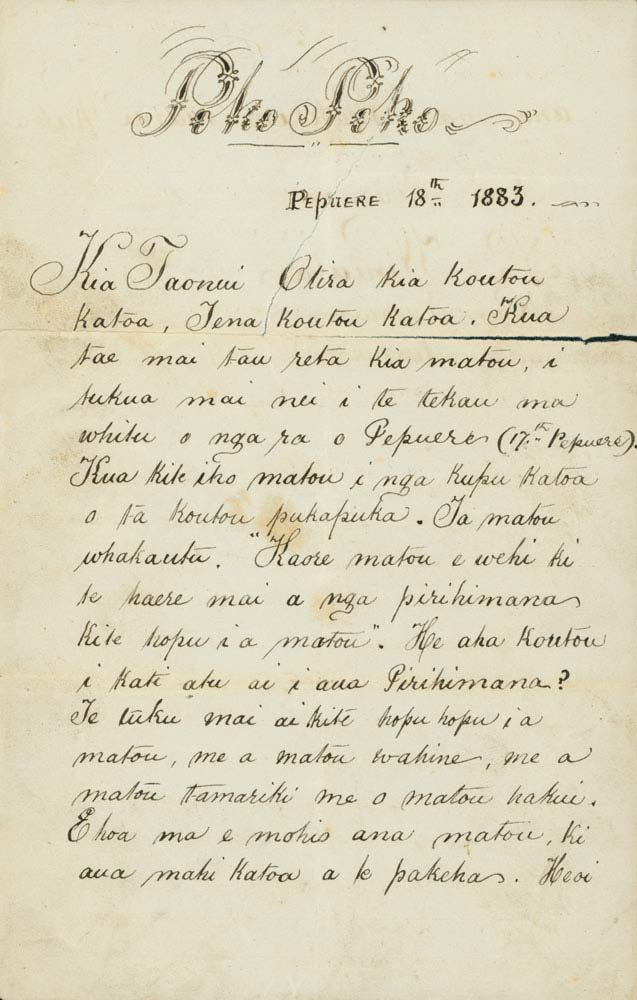 Poko Poko
Pepuere 18th 1883.
Kia Taonui Otira kia koutou
katoa, Tena koutou katoa. Kua
tae mai tau reta kia matou, i
tukua mai nei i te tekau ma
whitu o nga ra o Pepuere (17th Pepuere).
Kua kite iho matou i nga kupu katoa
o ta koutou pukapuka. Ta matou
whakautu. "Kaore matou e wehi ki
te haere mai a nga pirihimana
kite hopu i a matou". He aha koutou
i kati atu ai i aua Pirihimana?
Te tuku mai ai kite hopu hopu i a
matou, me a matou wahine, me a
matou tamariki me o matou hakui.
E hoa ma e mohio ana matou, ki
aua mahi katoa a te pakeha. Heoi